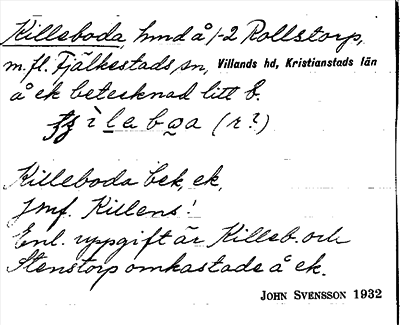 Killeboda, hmd å 1-2 Rollstorp,
m.fl. Fjälkestads sn, Villands hd, Kristianstads län
å ek betecknad litt B.
ì l a b a (r?)
Killeboda bek, ek.
Jmf. Killens!
Enl. uppgift är Killeb. och
Stenstorp omkastade å ek.
JOHN SVENSSON 1932